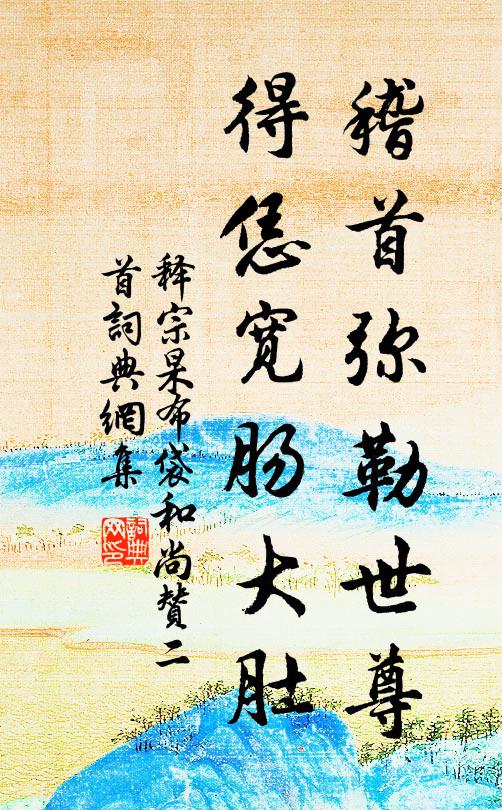 稽首弥勒世尊
得恁宽肠大肚
释宗杲布袋和尚赞二
首詞典網集
詞典网印